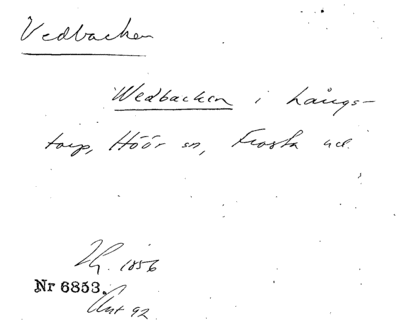 Vedbacken
Wedbacken i Långs-
torp, Höör sn, Frosta hd.
Hf. 1856
Nr 6853.
Ant 92